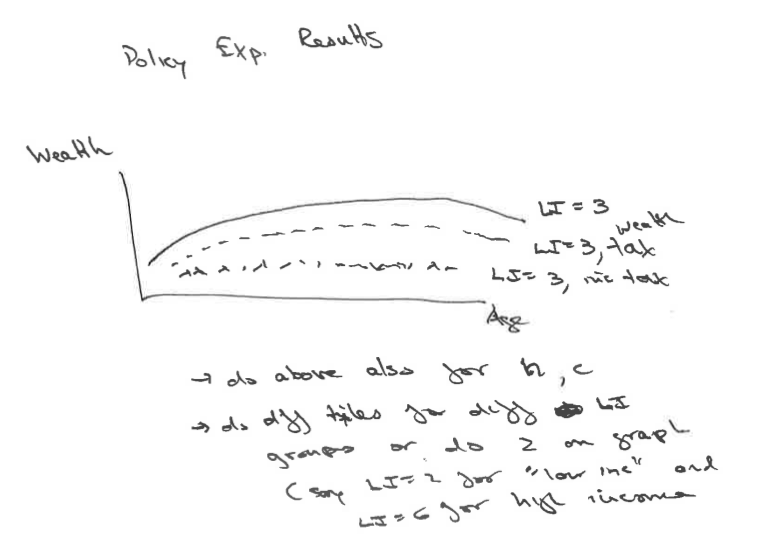 Policy Exp. Results
Wealth
LI = 3
LI=3, wealth tax
LI= 3, inc tax
Age
→ do above also for h, c
→ do diff files for diff LI
groups or do 2 on graph
(say LI=2 for "low inc" and
LI=6 for high income